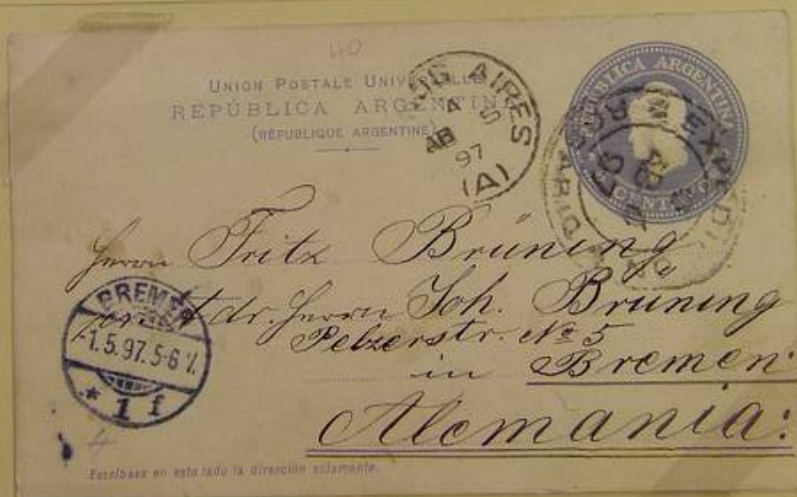 40
UNION POSTALE UNIVERSELLE
REPÚBLICA ARGENTINA
(RÉPUBLIQUE ARGENTINE)
AIRES
AB
97
(A)
REPUBLICA ARGENTINA
CENTAVOS
Herrn Fritz Brüning
dr. Herrn Joh. Brüning
Pelzerstr. № 5
in Bremen.
Alemania:
BREMEN
-1.5.97.5-6
* 1 f
4
Escríbase en este lado la dirección solamente.